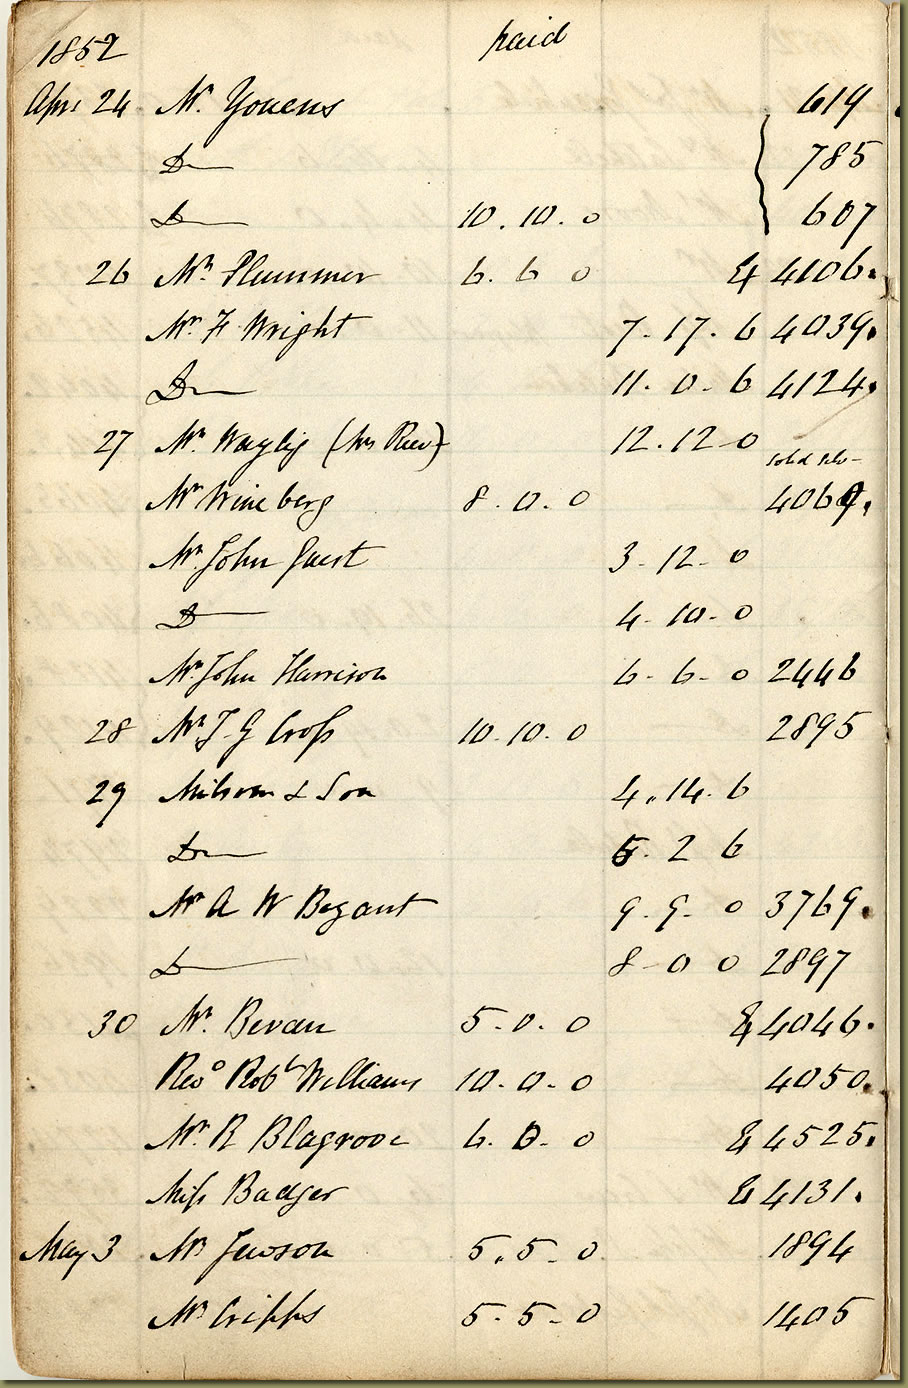 1852 paid
Apri 24 Mr. Youens 619
Do 785
Do 10. 10. 0 607
26 Mr. Plummer 6. 6 0 & 4106.
Mr. F. Wright 7. 17. 6 4039.
Do 11. 0. 6 4124.
27 Mr. (Mrs ) 12. 12 0
Mr Wineberg 8. 0. 0 4069.
Mr. John Guest 3 - 12 - 0
Do 4 - 10. 0
Mr. John Harrison 6 - 6 - 0 2446
28 Mr. J. G Cross 10. 10. 0 2895
29 Milsom & Son 4. 14. 6
Do 5. 2 6
Mr A W Bezant 9. 9. 0 3769.
Do 8 - 0 0 2897
30 Mr. Bevan 5. 0. 0 & 4046.
Revd Robt Williams 10. 0. 0 4050.
Mr. R Blagrove 6. 0. 0 & 4525.
Miss Badger & 4131.
May 3 Mr Jewson 5. 5 - 0 1894
Mr Cripps 5 - 5 - 0 1405